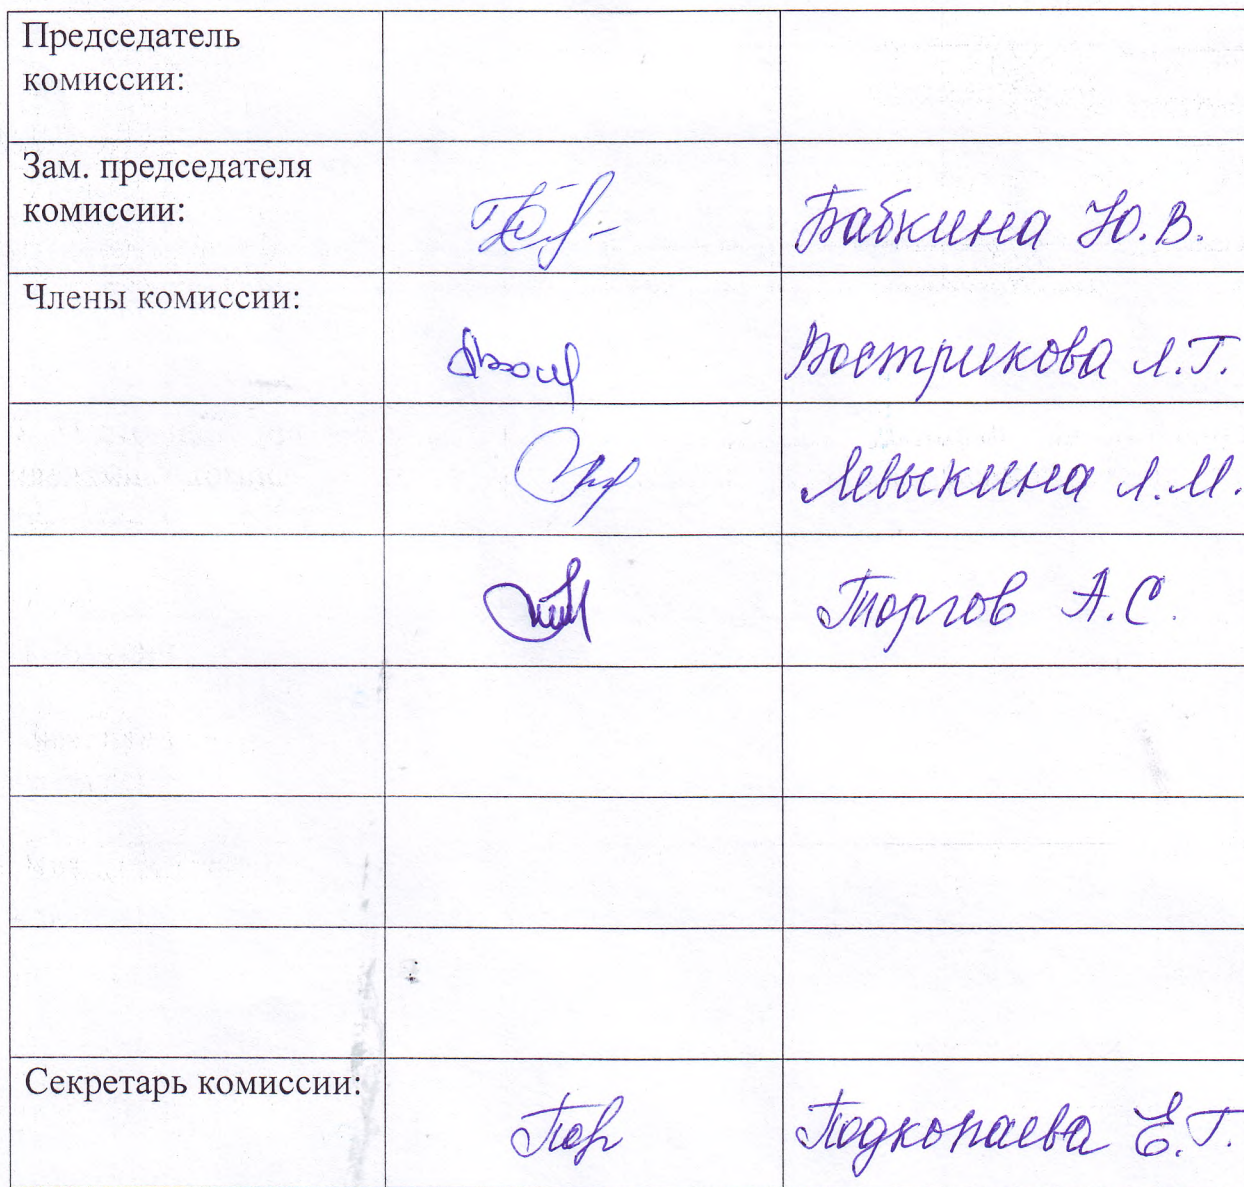 Председатель
комиссии:
Зам. председателя
комиссии:
Бабкина Ю.В.
Члены комиссии:
Вострикова Л.Г.
Левыкина Л.М.
Торгов А.С.
Секретарь комиссии:
Подкопаева Е.Г.